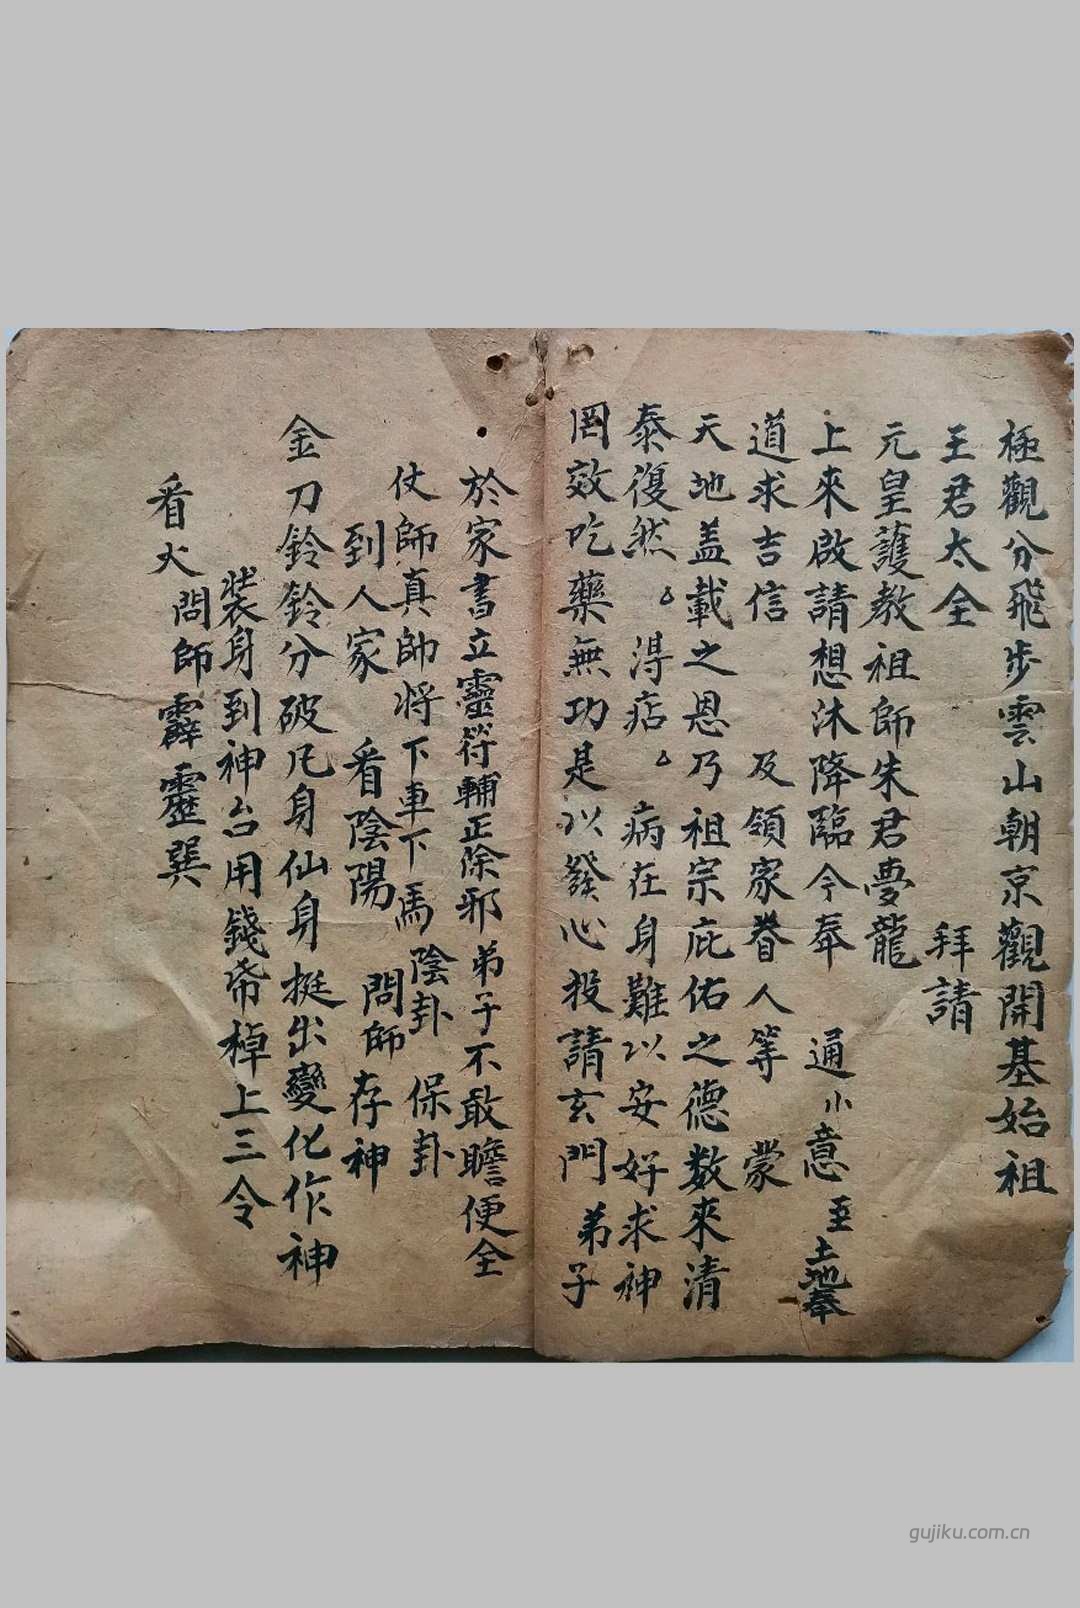 極觀分飛步雲山朝京觀開基始祖
王君太全 拜請
元皇護教祖師朱君夢龍
上來啟請想沐降臨今奉 通小意 至土地奉
道求吉信 及領家眷人等 蒙
天地盖載之恩乃祖宗庇佑之德数來清
泰復然。得痁。病在身難以安好求神
罔效吃藥無功是以發心投請玄門弟子
於家書立靈符輔正除邪弟子不敢瞻便全
仗師真帥将下車下馬陰卦 保卦
到人家 看陰陽 問師存神
金刀鈴鈴分破凡身仙身挺出變化作神
装身到神台用錢帋棹上三令
看火問師霹靂巽
gujiku.com.cn